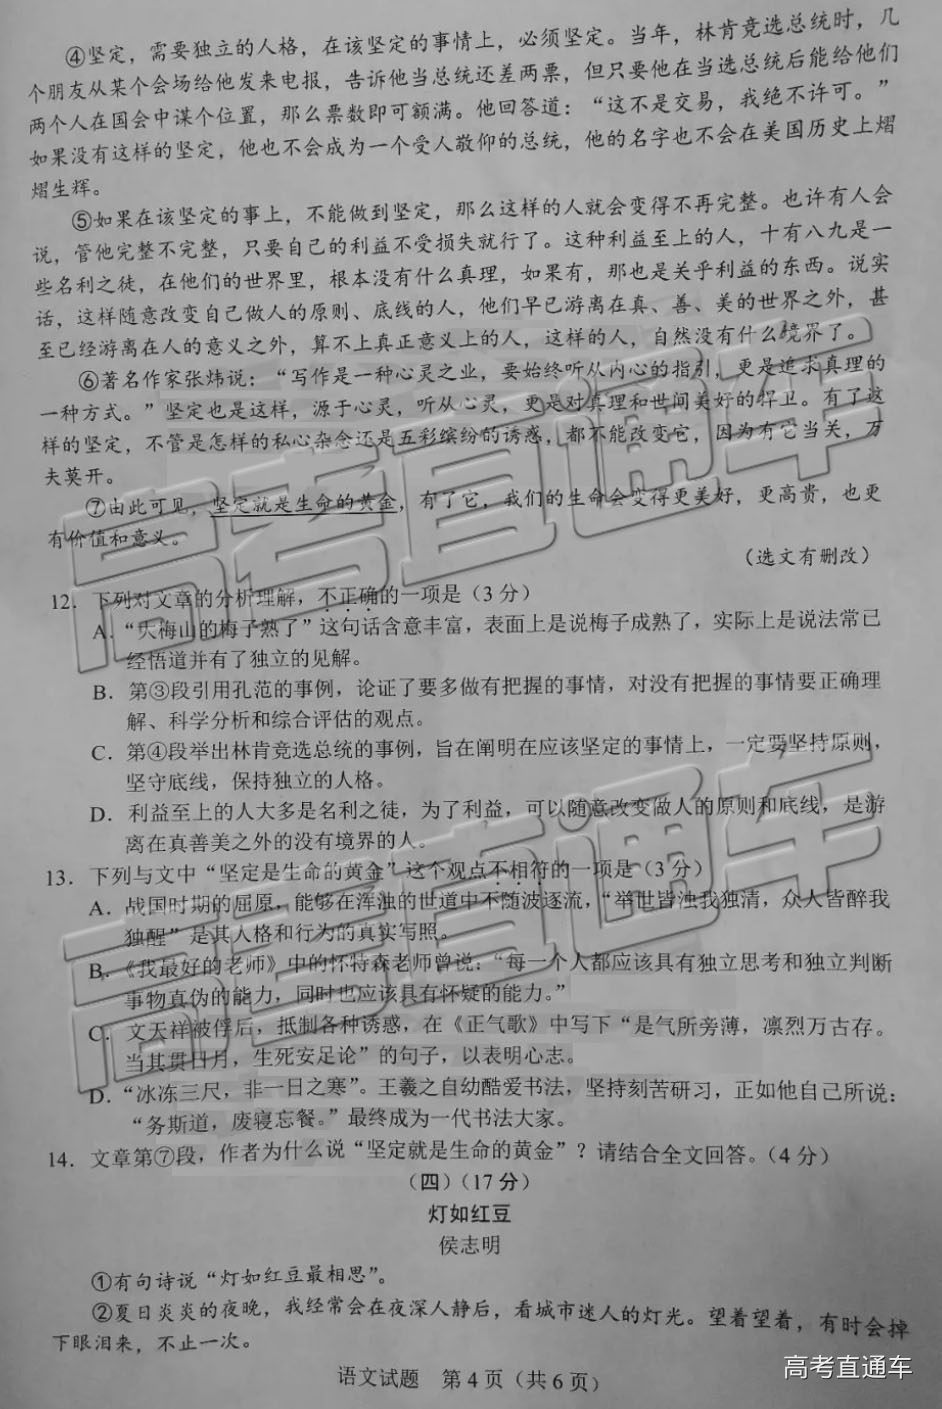 ④坚定，需要独立的人格，在该坚定的事情上，必须坚定。当年，林肯竞选总统时，几
个朋友从某个会场给他发来电报，告诉他当总统还差两票，但只要他在当选总统后能给他们
两个人在国会中谋个位置，那么票数即可额满。他回答道：“这不是交易，我绝不许可。”
如果没有这样的坚定，他也不会成为一个受人敬仰的总统，他的名字也不会在美国历史上熠
熠生辉。
⑤如果在该坚定的事上，不能做到坚定，那么这样的人就会变得不再完整。也许有人会
说，管他完整不完整，只要自己的利益不受损失就行了。这种利益至上的人，十有八九是一
些名利之徒，在他们的世界里，根本没有什么真理，如果有，那也是关乎利益的东西。说实
话，这样随意改变自己做人的原则、底线的人，他们早已游离在真、善、美的世界之外，甚
至已经游离在人的意义之外，算不上真正意义上的人，这样的人，自然没有什么境界了。
⑥著名作家张炜说：“写作是一种心灵之业，要始终听从内心的指引，更是追求真理的
一种方式。”坚定也是这样，源于心灵，听从心灵，更是对真理和世间美好的捍卫。有了这
样的坚定，不管是怎样的私心杂念还是五彩缤纷的诱惑，都不能改变它，因为有它当关，万
夫莫开。
⑦由此可见，坚定就是生命的黄金，有了它，我们的生命会变得更美好，更高贵，也更
有价值和意义。
（选文有删改）
12．下列对文章的分析理解，不正确的一项是（3 分）
A．“大梅山的梅子熟了”这句话含意丰富，表面上是说梅子成熟了，实际上是说法常已
经悟道并有了独立的见解。
B．第③段引用孔范的事例，论证了要多做有把握的事情，对没有把握的事情要正确理
解、科学分析和综合评估的观点。
C．第④段举出林肯竞选总统的事例，旨在阐明在应该坚定的事情上，一定要坚持原则，
坚守底线，保持独立的人格。
D．利益至上的人大多是名利之徒，为了利益，可以随意改变做人的原则和底线，是游
离在真善美之外的没有境界的人。
13．下列与文中“坚定是生命的黄金”这个观点不相符的一项是（3 分）
A．战国时期的屈原，能够在浑浊的世道中不随波逐流，“举世皆浊我独清，众人皆醉我
独醒”是其人格和行为的真实写照。
B．《我最好的老师》中的怀特森老师曾说：“每一个人都应该具有独立思考和独立判断
事物真伪的能力，同时也应该具有怀疑的能力。”
C．文天祥被俘后，抵制各种诱惑，在《正气歌》中写下“是气所旁薄，凛烈万古存。
当其贯日月，生死安足论”的句子，以表明心志。
D．“冰冻三尺，非一日之寒”。王羲之自幼酷爱书法，坚持刻苦研习，正如他自己所说：
“务斯道，废寝忘餐。”最终成为一代书法大家。
14．文章第⑦段，作者为什么说“坚定就是生命的黄金”？请结合全文回答。（4 分）
（四）（17 分）
灯如红豆
侯志明
①有句诗说“灯如红豆最相思”。
②夏日炎炎的夜晚，我经常会在夜深人静后，看城市迷人的灯光。望着望着，有时会掉
下眼泪来，不止一次。
语文试题 第 4 页（共 6 页）
高考直通车
高考直通车
高考直通车